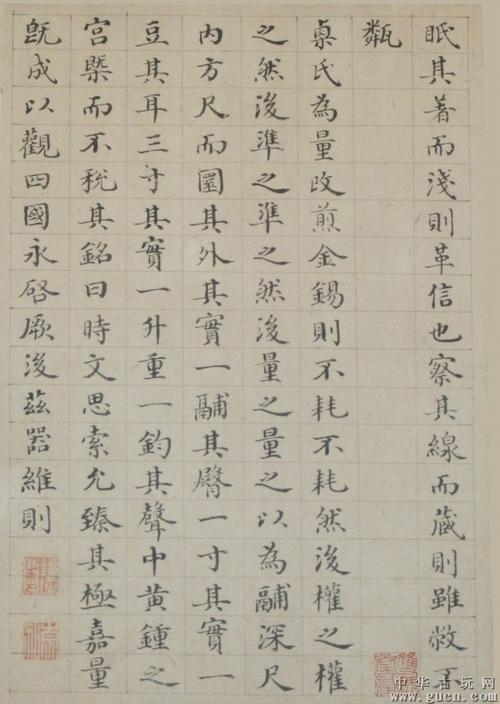 眂其著而淺則革信也察其線而蔵則雖敝不
甐
㮚氏為量改煎金錫則不耗不耗然後權之權
之然後準之準之然後量之量之以為鬴深尺
内方尺而圜其外其實一鬴其臀一寸其實一
豆其耳三寸其實一升重一鈞其聲中黄鍾之
宫槩而不税其銘曰時文思索允臻其極嘉量
既成以觀四國永啓厥後兹器維則
中华古玩网
www.gucn.com